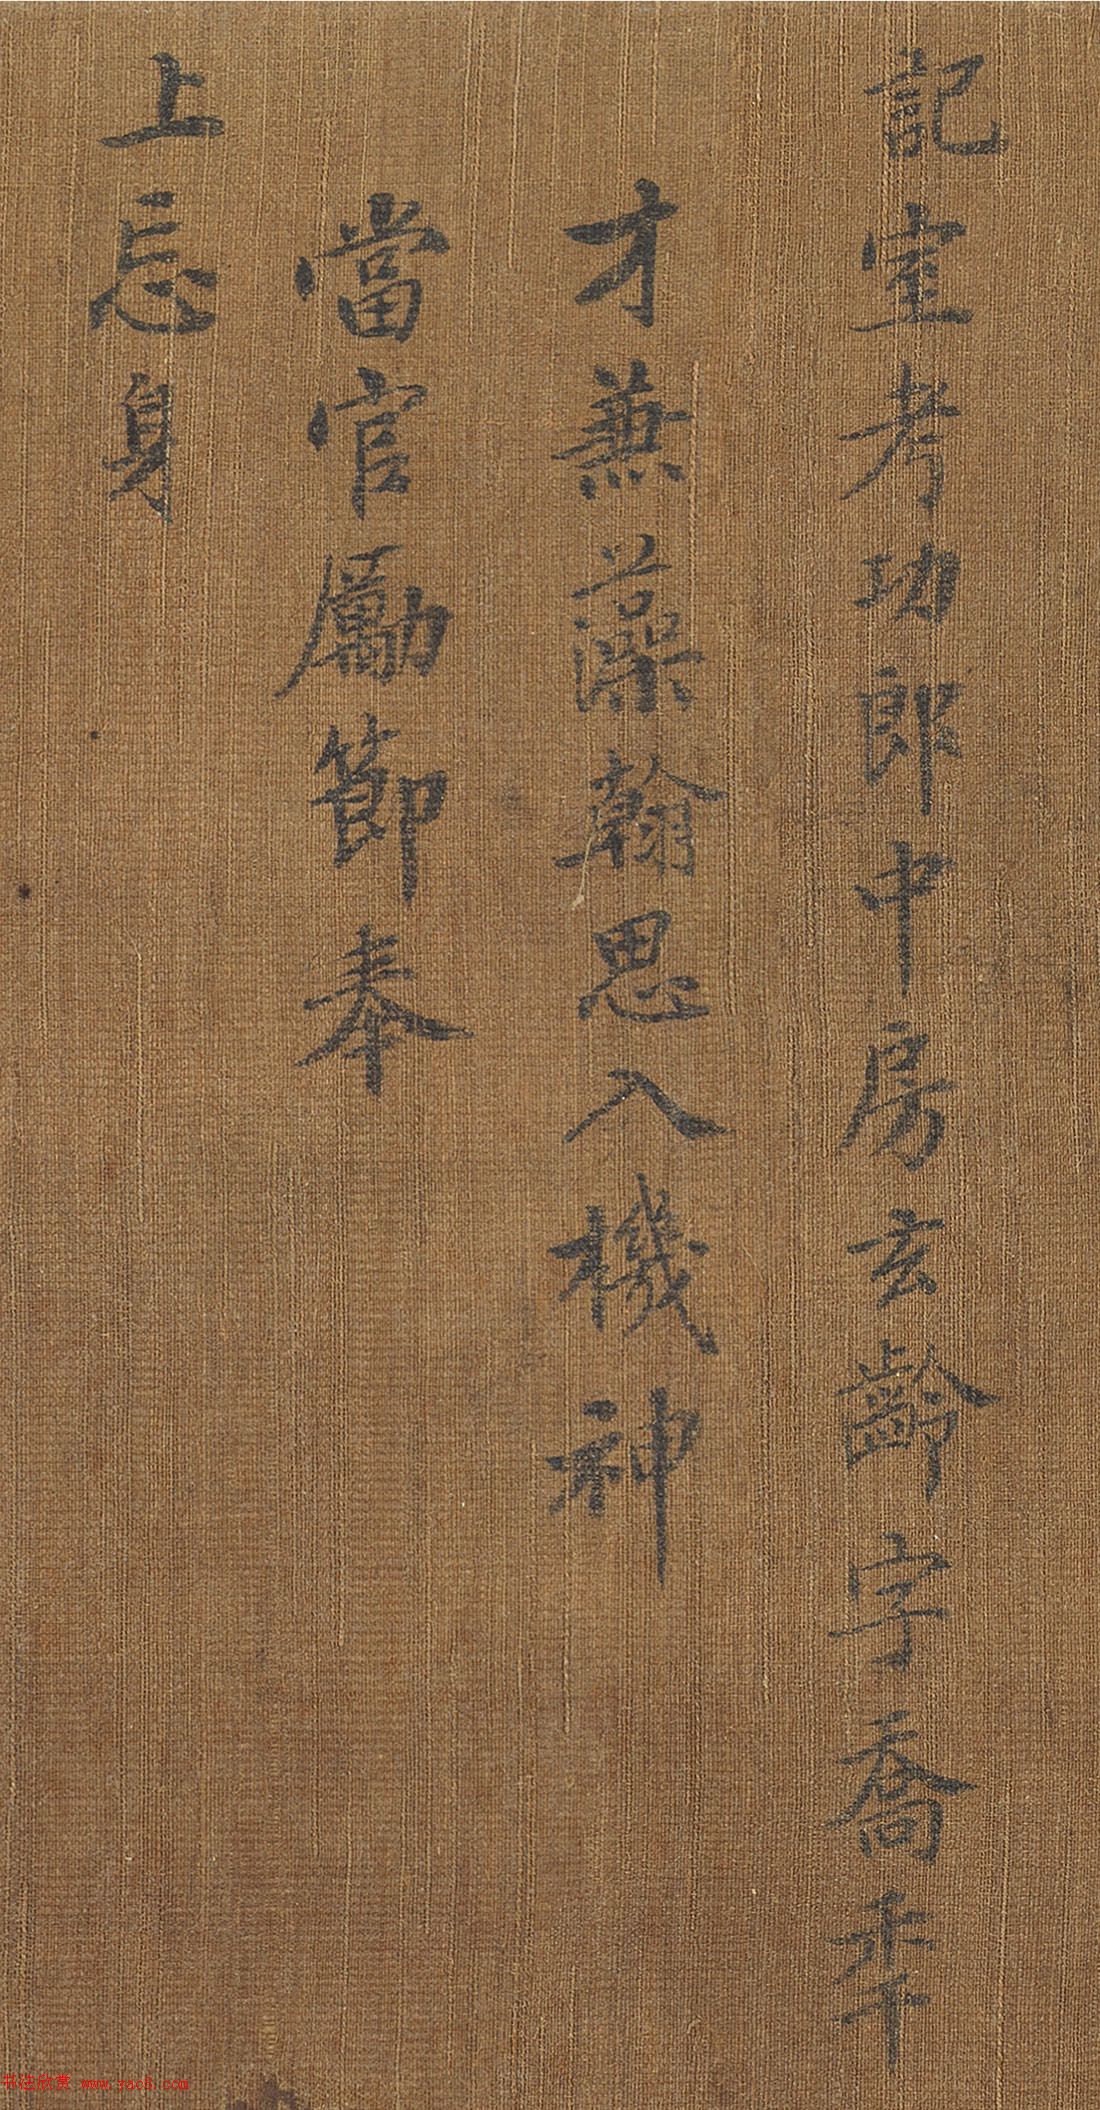 記室考功郎中房玄齡字喬年
才兼藻翰思入機神
當官勵節奉
上忘身
书法欣赏 www.yac8.com